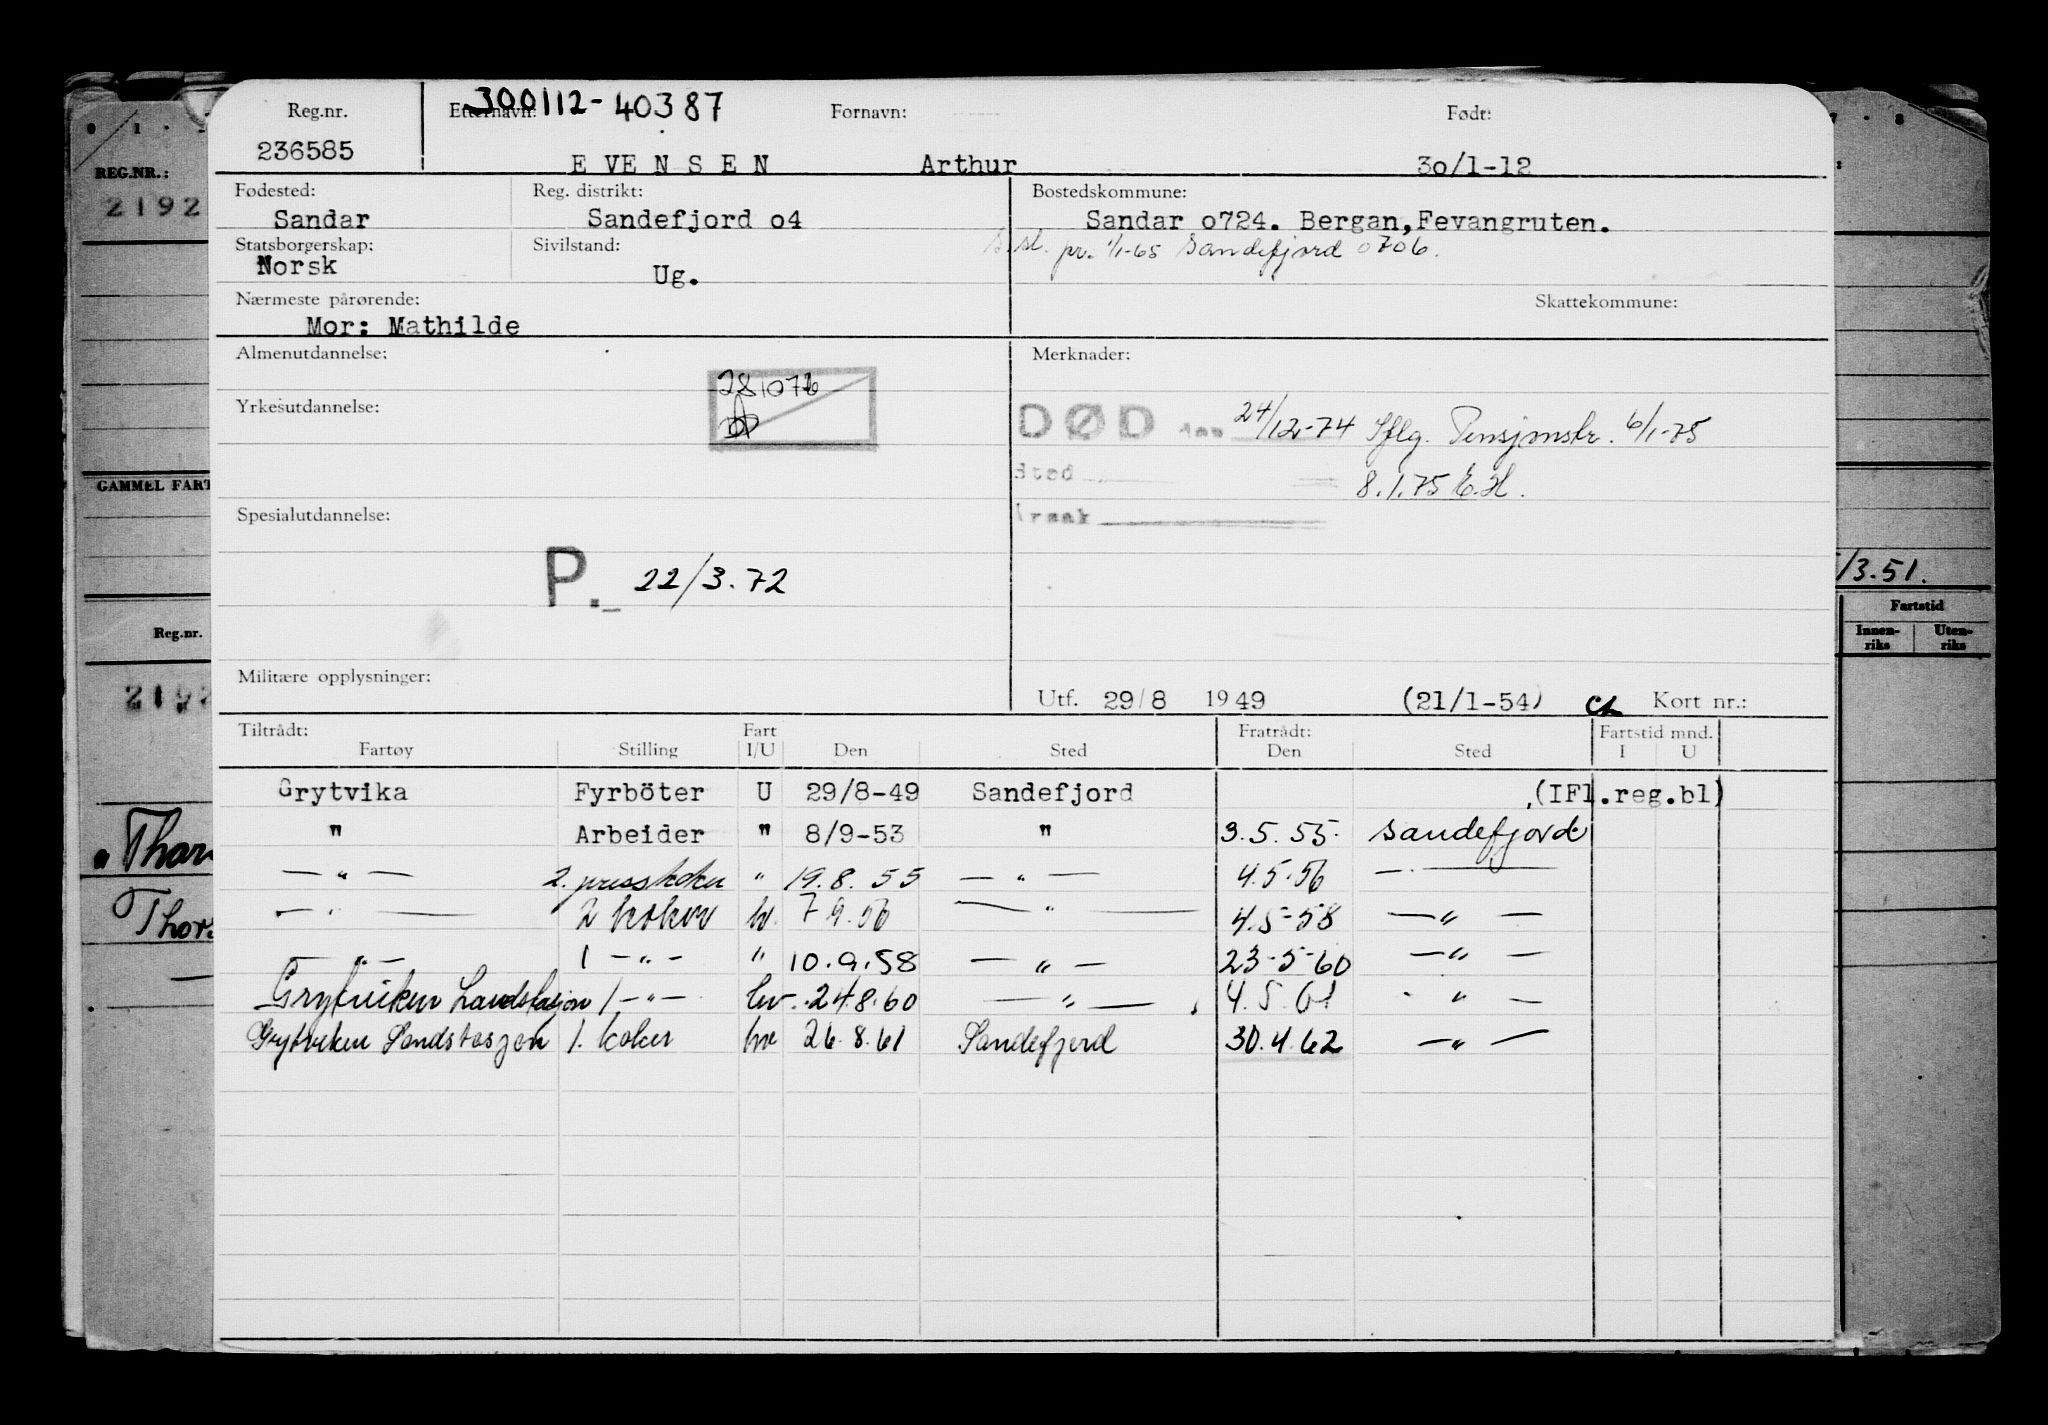 300112-40387
Reg.nr. Etternavn: Fornavn: Født:
236585 E VE N S E N Arthur 3o/1-12
Fødested: Reg. distrikt: Bostedskommune:
Sandar Sandefjord o4 Sandar o724. Bergan,Fevangruten.
Statsborgerskap: Sivilstand: pr. 1/1-65 Sandefjord 0706.
Norsk Ug.
Nærmeste pårørende: Skattekommune:
Mor: Mathilde
Almenutdannelse: Merknader:
281076
Yrkesutdannelse: DØD 24/12-74 Iflg. Pensjonstr. 6/1-75
Sted 8.1.75 E.H.
Spesialutdannelse: Årsak
P. 22/3.72
Militære opplysninger:
Utf. 29/8 1949 (21/1-54) Kort nr.:
Tiltrådt: Fart Fratrådt: Fartstid mnd.
Fartøy Stilling I/U Den Sted Den Sted I U
Grytvika Fyrböter U 29/8-49 Sandefjord (IFl.reg.bl)
" Arbeider " 8/9-53 " 3.5.55. Sandefjord
— " — 2. presskoker " 19.8.55 — " — 4.5.56 —
— " — 2 koker hv. 7.9.56 — " — 4.5-58 — " —
— " — 1 — " — " 10.9.58 — " — 23-5-60 — " —
Grytviken Landstasjon 1 — " — hv. 24.8.60 — " — 4.5.61 " —
Grytviken Landstasjon 1. koker hv 26.8.61 Sandefjord 30.4.62 — " —
REG.NR.:
2192
GAMMEL FART
Reg.nr.
2192
" Thor
Thors
—
7 . 8
/3.51.
Fartstid
Innen-riks Uten-riks